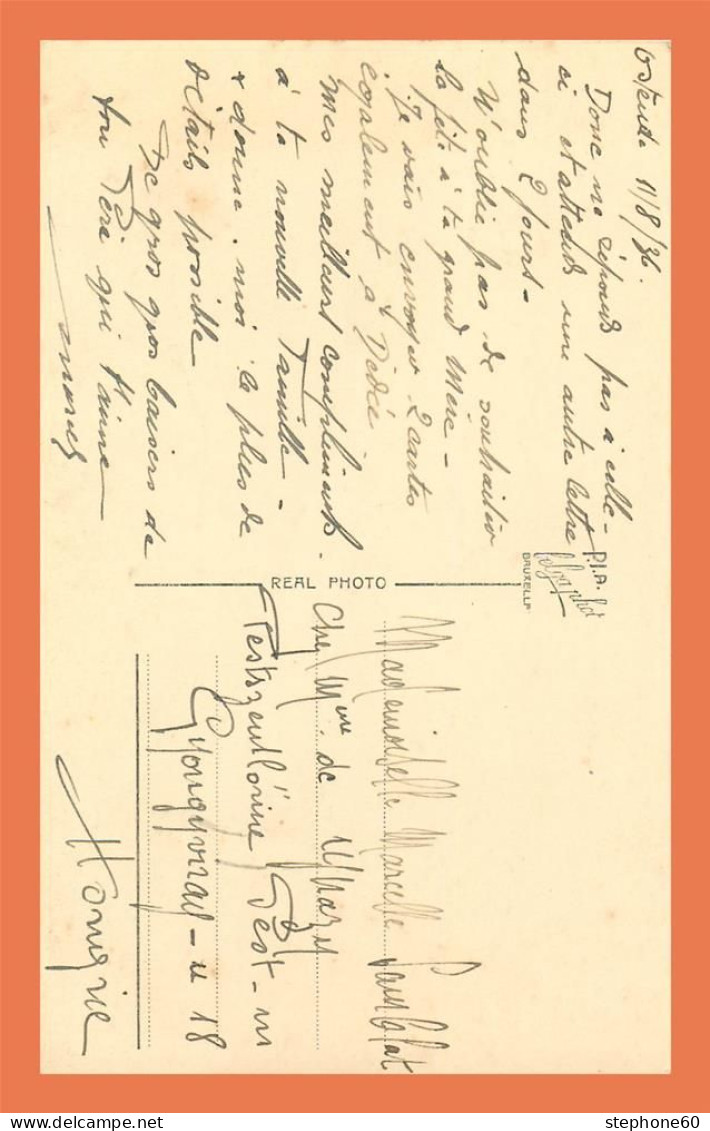 Ostende 11/8/36.
Donc ne réponds pas à celle-
ci et attends une autre lettre
dans 2 jours -
N'oublie pas de souhaiter
la fête à ta grand Mère -
Je vais envoyer 2 cartes
également à Dédée
Mes meilleurs compliments
à ta nouvelle Famille -
& donne-moi le plus de
détails possible
De gros gros baisers de
ton Père qui t'aime
P.I.A.
BRUXELLES
REAL PHOTO
Mademoiselle Marcelle
Chez Mme de
Pestszentlőrinc Pest-m
Gyöngyvirág-u 18
Hongrie
stephone60